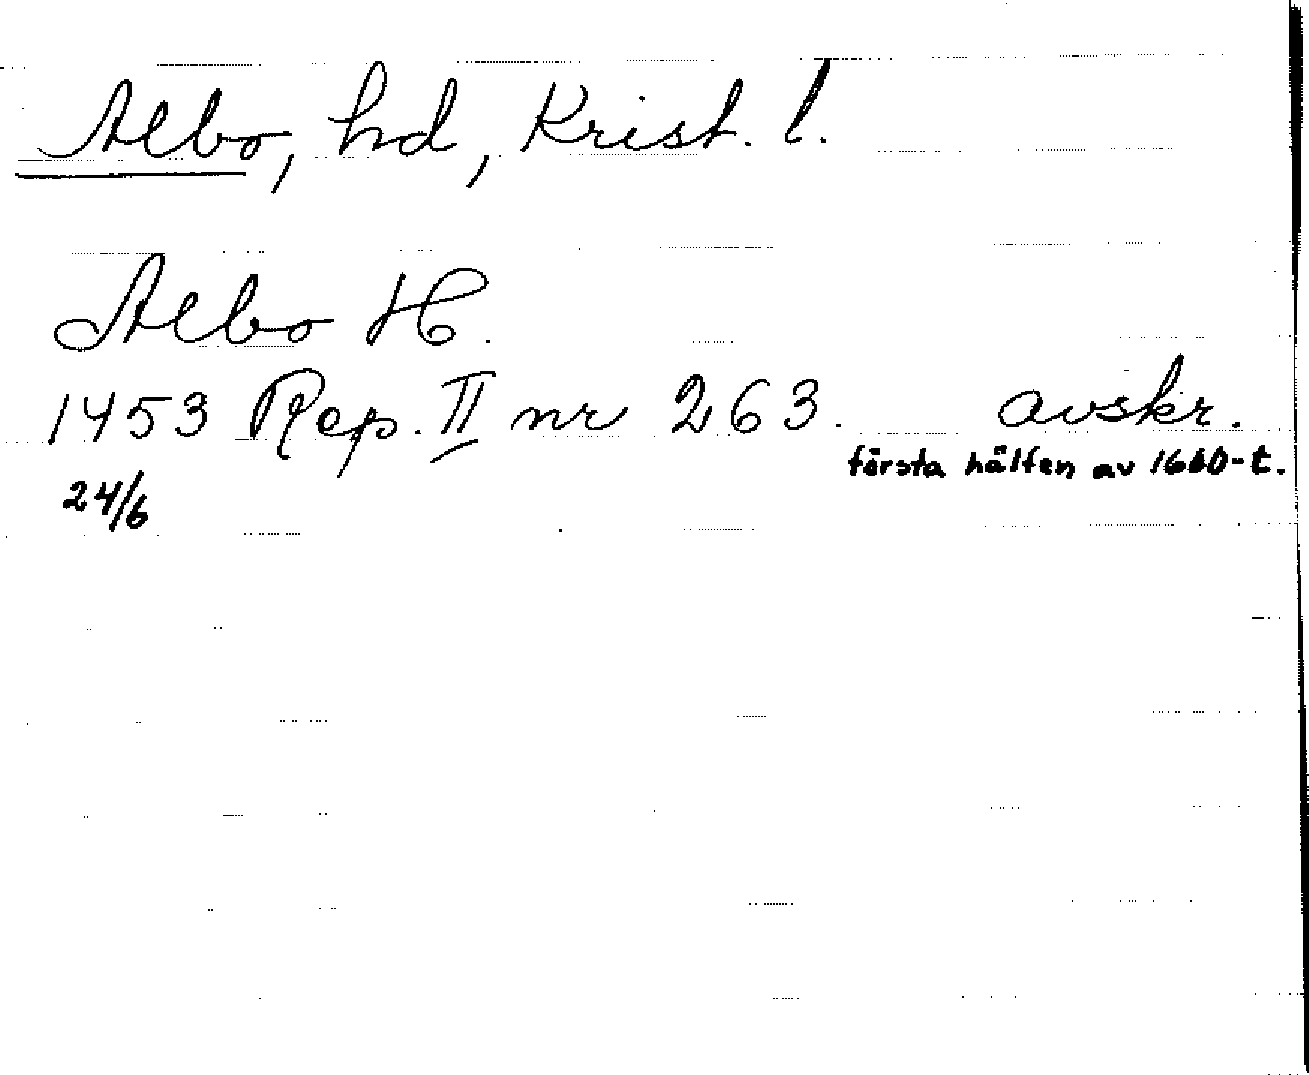 Albo, hd, Krist. l.
Albo H.
1453 Rep. II nr 263. avskr.
24/6 första hälften av 1600-t.